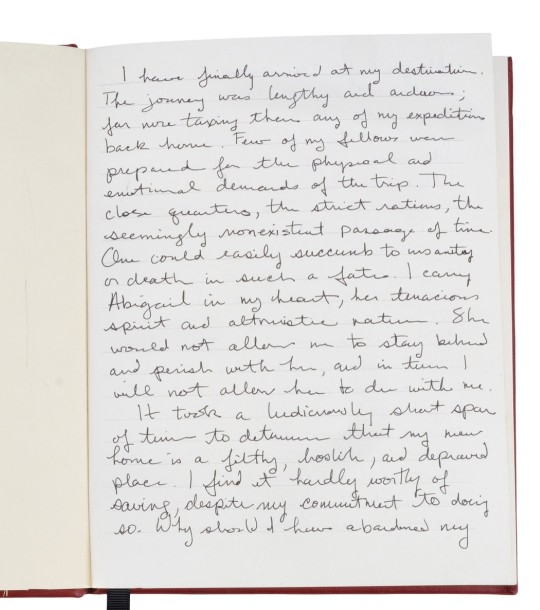 I have finally arrived at my destination.
The journey was lengthy and arduous;
far more taxing than any of my expeditions
back home. Few of my fellows were
prepared for the physical and
emotional demands of the trip. The
close quarters, the strict rations, the
seemingly nonexistent passage of time.
One could easily succumb to insanity
or death in such a fate. I carry
Abigail in my heart, her tenacious
spirit and altruistic nature. She
would not allow me to stay behind
and perish with her, and in turn I
will not allow her to die with me.
It took a ludicrously short span
of time to determine that my new
home is a filthy, foolish, and depraved
place. I find it hardly worthy of
saving, despite my commitment to doing
so. Why should I have abandoned my